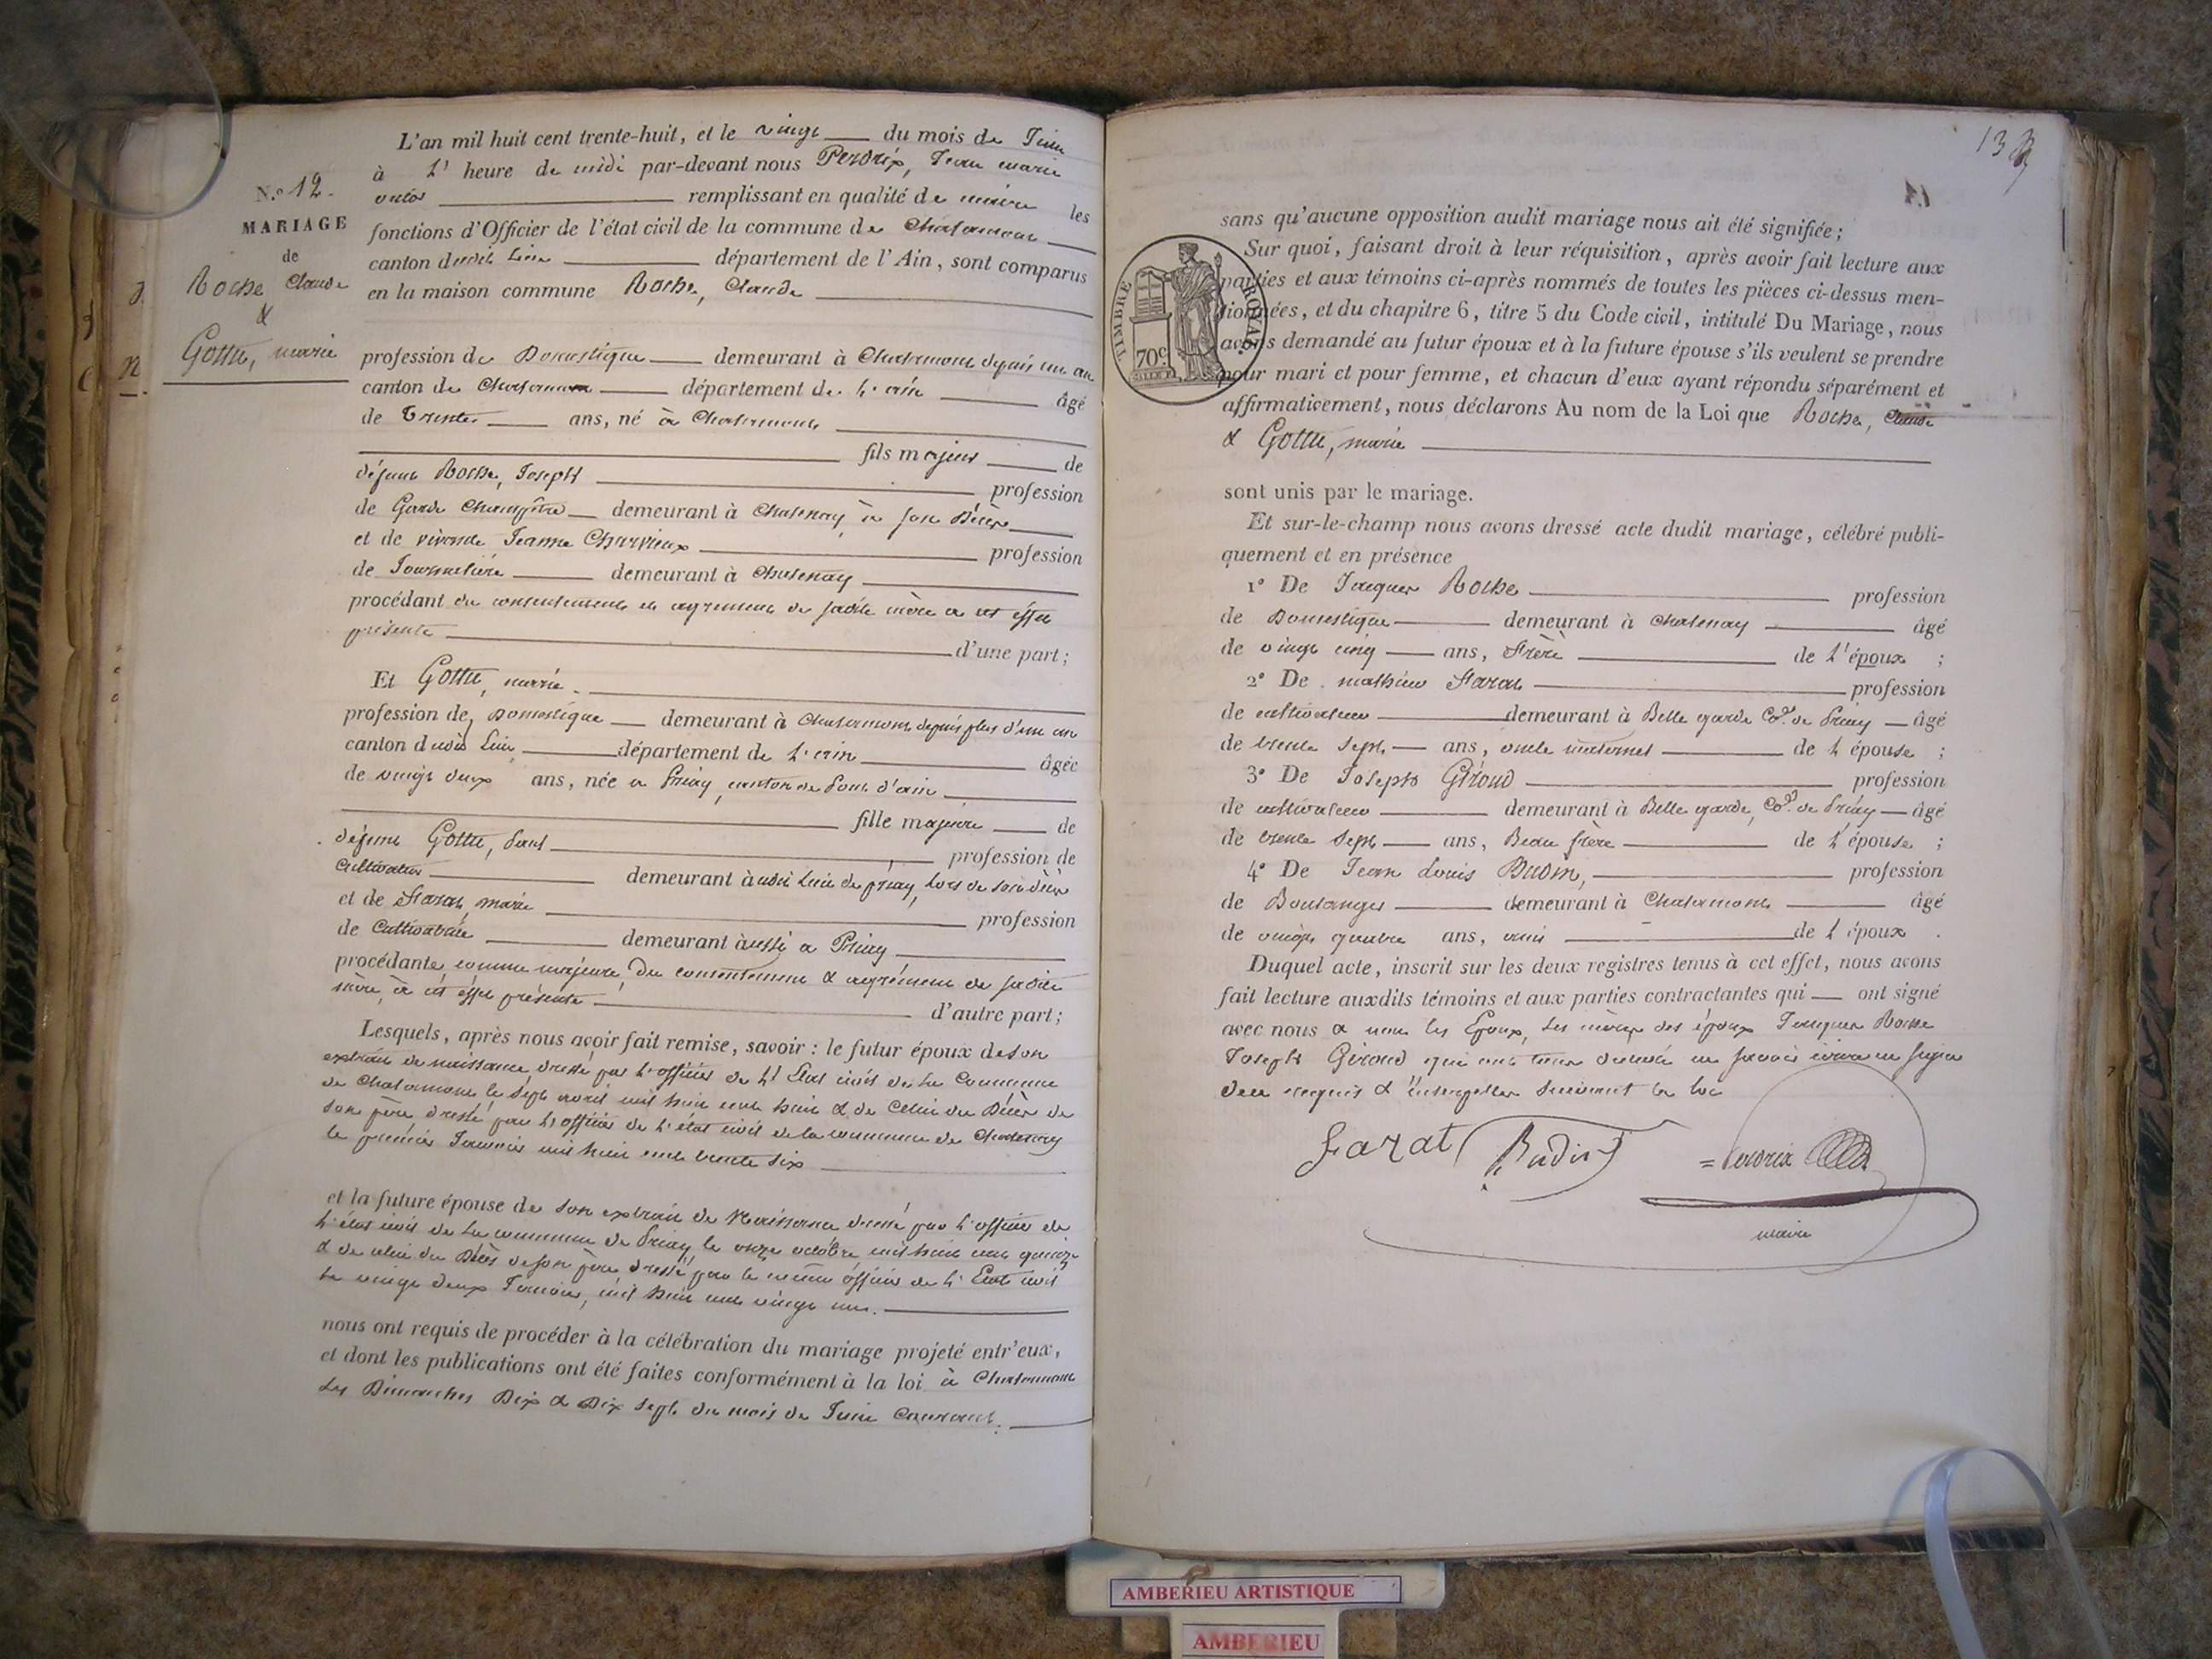 L'an mil huit cent trente-huit, et le vingt du mois de Juin
à l' heure de midi par-devant nous Perdrix, Jean marie
victor remplissant en qualité de maire les
fonctions d'Officier de l'état civil de la commune de Chalamont
canton dudit Lieu département de l'Ain, sont comparus
en la maison commune Roche, Claude
N.º 12.
MARIAGE
de
Roche Claude
&
Gottu, marie
profession de Domestique demeurant à Chalamont depuis un an
canton de Chalamont département de l'ain âgé
de trente ans, né à Chalamont
fils majeur de
défunt Roche, Joseph profession
de Garde Champêtre demeurant à Chatenay, à son Décès
et de vivante Jeanne Charvieux profession
de Journalière demeurant à Chatenay
procédant du consentement et agrement de sadite mère a cet effet
présente d'une part;
Et Gottu, marie
profession de Domestique demeurant à Chalamont depuis plus d'un an
canton dudit Lieu département de l'ain âgée
de vingt deux ans, née a Priay, canton de Pont d'ain
fille majeure de
défunt Gottu, Paul profession de
Cultivateur demeurant audit Lieu de priay, lors de son décès
et de Farat, marie profession
de Cultivatrice demeurant aussi a Priay
procédante, comme majeure, du consentement & agrément de sadite
mère, à cet effet présente d'autre part;
Lesquels, après nous avoir fait remise, savoir : le futur époux de son
extrait de naissance dressé par l'officier de l'Etat civil de la Commune
de Chalamont le sept avril mil huit cent huit & de Celui du Décès de
son père dressé par l'officier de l'état civil de la commune de Chatenay
le premier Janvier mil huit cent trente six
et la future épouse de son extrait de Naissance dressé par l'officier de
l'état civil de la commune de Priay le onze octobre mil huit cent quinze
& de celui du Décès de son père dressé par le même officier de l'Etat civil
le vingt deux Janvier, mil huit cent vingt un.
nous ont requis de procéder à la célébration du mariage projeté entr'eux,
et dont les publications ont été faites conformément à la loi à Chalamont
les Dimanches Dix & Dix sept du mois de Juin Courant.
13
sans qu'aucune opposition audit mariage nous ait été signifiée;
Sur quoi, faisant droit à leur réquisition, après avoir fait lecture aux
parties et aux témoins ci-après nommés de toutes les pièces ci-dessus men-
tionnées, et du chapitre 6, titre 5 du Code civil, intitulé Du Mariage, nous
avons demandé au futur époux et à la future épouse s'ils veulent se prendre
pour mari et pour femme, et chacun d'eux ayant répondu séparément et
affirmativement, nous déclarons Au nom de la Loi que Roche, Claude
& Gottu, marie
TIMBRE ROYAL
70c
sont unis par le mariage.
Et sur-le-champ nous avons dressé acte dudit mariage, célébré publi-
quement et en présence
1º De Jacques Roche profession
de Domestique demeurant à Chatenay âgé
de vingt cinq ans, Frère de l'époux ;
2º De mathieu Farat profession
de cultivateur demeurant à Belle garde Cne. de Priay âgé
de trente sept ans, oncle maternel de l'épouse ;
3º De Joseph Giroud profession
de cultivateur demeurant à Belle garde, Cne. de Priay âgé
de trente sept ans, Beau frère de l'épouse ;
4º De Jean Louis Budin, profession
de Boulanger demeurant à Chalamont âgé
de vingt quatre ans, ami de l'époux .
Duquel acte, inscrit sur les deux registres tenus à cet effet, nous avons
fait lecture auxdits témoins et aux parties contractantes qui ont signé
avec nous & non les Epoux, les mères des époux Jacques Roche
Joseph Giroud qui ont tous déclaré ne savoir écrire ni signer
de ce requis & interpellés suivant la loi
Farat Budin Perdrix
maire
AMBERIEU ARTISTIQUE
AMBERIEU